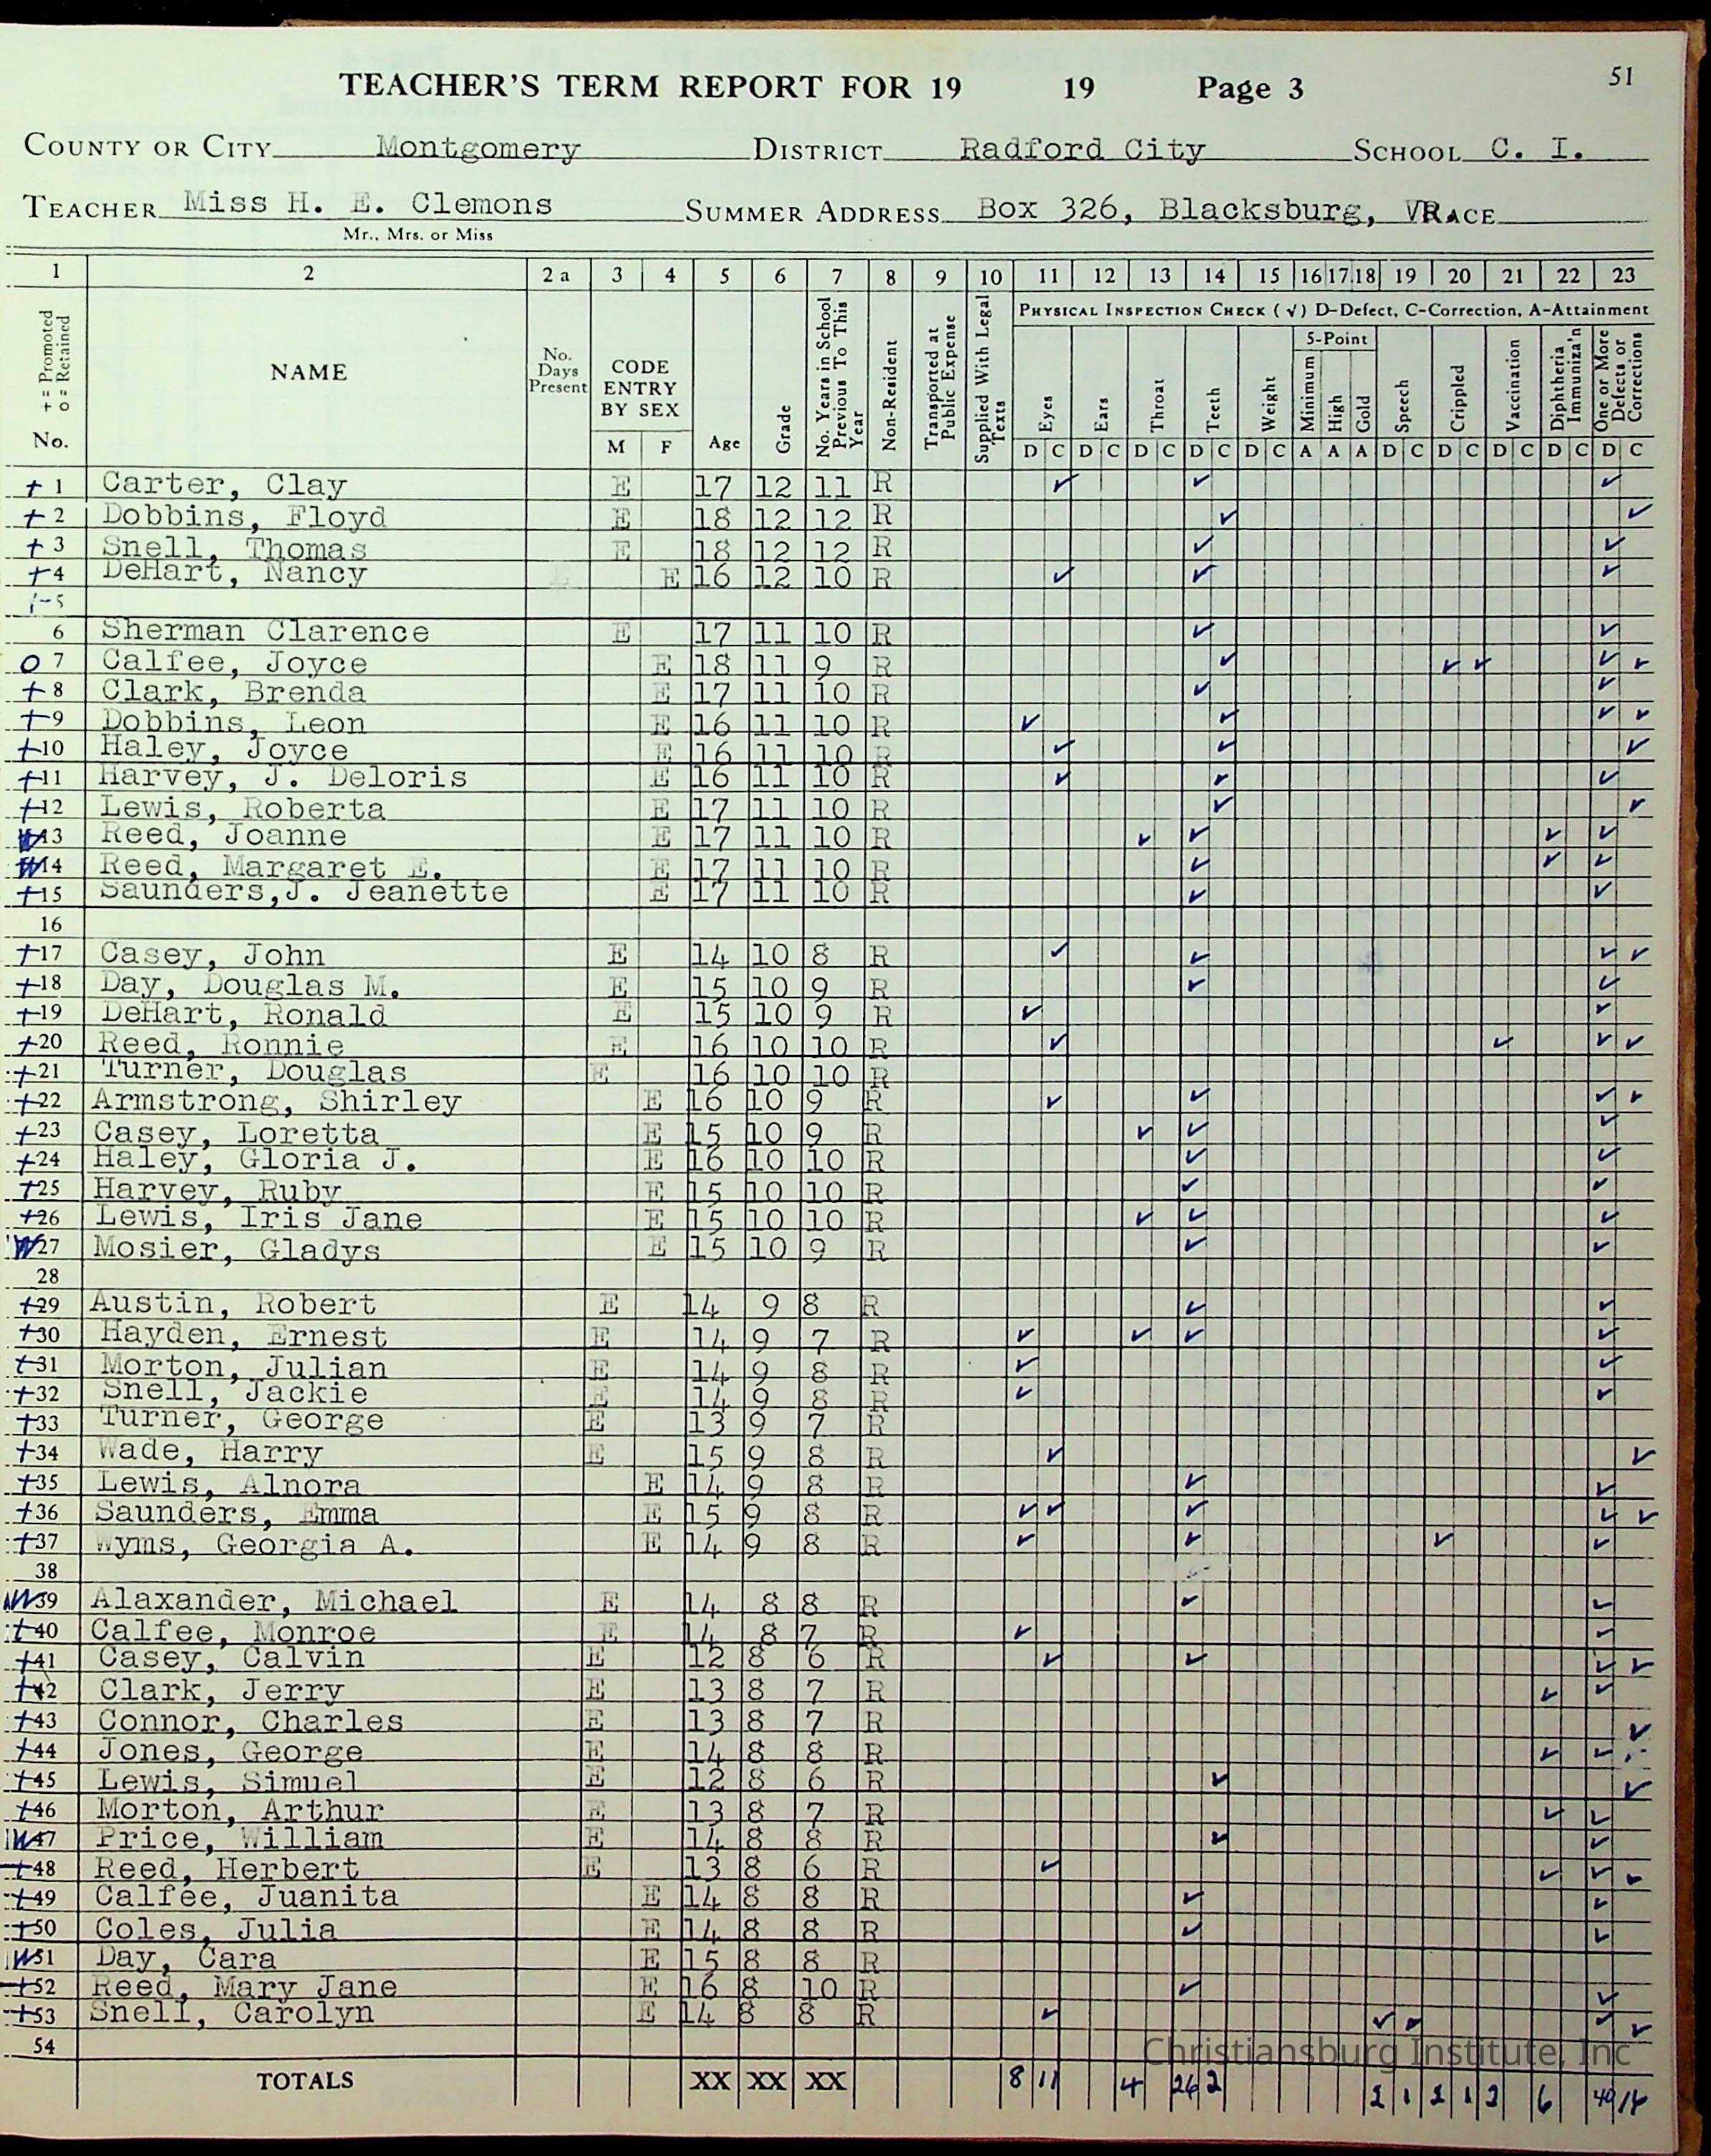 51
TEACHER'S TERM REPORT FOR 19 19 Page 3
COUNTY OR CITY Montgomery DISTRICT Radford City SCHOOL C. I.
TEACHER Miss H. E. Clemons SUMMER ADDRESS Box 326, Blacksburg, VA RACE
Mr., Mrs. or Miss
1 2 2 a 3 4 5 6 7 8 9 10 11 12 13 14 15 16 17 18 19 20 21 22 23
+ = Promoted o = Retained No. NAME No. Days Present CODE ENTRY BY SEX M F Age Grade No. Years in School Previous To This Year Non-Resident Transported at Public Expense Supplied With Legal Texts
PHYSICAL INSPECTION CHECK (√) D-Defect, C-Correction, A-Attainment
Eyes Ears Throat Teeth Weight 5-Point Minimum High Gold Speech Crippled Vaccination Diphtheria Immuniza'n One or More Defects or Corrections
D C D C D C D C D C A A A D C D C D C D C D C
+ 1 Carter, Clay E 17 12 11 R ✓ ✓ ✓
+ 2 Dobbins, Floyd E 18 12 12 R ✓ ✓
+ 3 Snell, Thomas E 18 12 12 R ✓ ✓
+ 4 DeHart, Nancy E 16 12 10 R ✓ ✓ ✓
5
6 Sherman Clarence E 17 11 10 R ✓ ✓
O 7 Calfee, Joyce E 18 11 9 R ✓ ✓ ✓ ✓ ✓
+ 8 Clark, Brenda E 17 11 10 R ✓ ✓
+ 9 Dobbins, Leon E 16 11 10 R ✓ ✓ ✓ ✓
+ 10 Haley, Joyce E 16 11 10 R ✓ ✓ ✓
+ 11 Harvey, J. Deloris E 16 11 10 R ✓ ✓ ✓
+ 12 Lewis, Roberta E 17 11 10 R ✓ ✓
W 13 Reed, Joanne E 17 11 10 R ✓ ✓ ✓ ✓
W 14 Reed, Margaret E. E 17 11 10 R ✓ ✓ ✓
+ 15 Saunders,J. Jeanette E 17 11 10 R ✓ ✓
16
+ 17 Casey, John E 14 10 8 R ✓ ✓ ✓ ✓
+ 18 Day, Douglas M. E 15 10 9 R ✓ ✓
+ 19 DeHart, Ronald E 15 10 9 R ✓ ✓
+ 20 Reed, Ronnie E 16 10 10 R ✓ ✓ ✓ ✓
+ 21 Turner, Douglas E 16 10 10 R
+ 22 Armstrong, Shirley E 16 10 9 R ✓ ✓ ✓ ✓
+ 23 Casey, Loretta E 15 10 9 R ✓ ✓ ✓
+ 24 Haley, Gloria J. E 16 10 10 R ✓ ✓
+ 25 Harvey, Ruby E 15 10 10 R ✓ ✓
+ 26 Lewis, Iris Jane E 15 10 10 R ✓ ✓ ✓
W 27 Mosier, Gladys E 15 10 9 R ✓ ✓
28
+ 29 Austin, Robert E 14 9 8 R ✓ ✓
+ 30 Hayden, Ernest E 14 9 7 R ✓ ✓ ✓ ✓
+ 31 Morton, Julian E 14 9 8 R ✓ ✓
+ 32 Snell, Jackie E 14 9 8 R ✓ ✓
+ 33 Turner, George E 13 9 7 R
+ 34 Wade, Harry E 15 9 8 R ✓ ✓
+ 35 Lewis, Alnora E 14 9 8 R ✓ ✓
+ 36 Saunders, Emma E 15 9 8 R ✓ ✓ ✓ ✓ ✓
+ 37 Wyms, Georgia A. E 14 9 8 R ✓ ✓ ✓ ✓
38
W 39 Alaxander, Michael E 14 8 8 R ✓ ✓
+ 40 Calfee, Monroe E 14 8 7 R ✓ ✓
+ 41 Casey, Calvin E 12 8 6 R ✓ ✓ ✓ ✓
+ 42 Clark, Jerry E 13 8 7 R ✓ ✓
+ 43 Connor, Charles E 13 8 7 R ✓
+ 44 Jones, George E 14 8 8 R ✓ ✓
+ 45 Lewis, Simuel E 12 8 6 R ✓ ✓
+ 46 Morton, Arthur E 13 8 7 R ✓ ✓
W 47 Price, William E 14 8 8 R ✓ ✓
+ 48 Reed, Herbert E 13 8 6 R ✓ ✓ ✓ ✓
+ 49 Calfee, Juanita E 14 8 8 R ✓ ✓
+ 50 Coles, Julia E 14 8 8 R ✓ ✓
W 51 Day, Cara E 15 8 8 R
+ 52 Reed, Mary Jane E 16 8 10 R ✓ ✓
+ 53 Snell, Carolyn E 14 8 8 R ✓ ✓ ✓ ✓ ✓
54
Christiansburg Institute, Inc
TOTALS XX XX XX 8 11 4 26 2 1 1 6